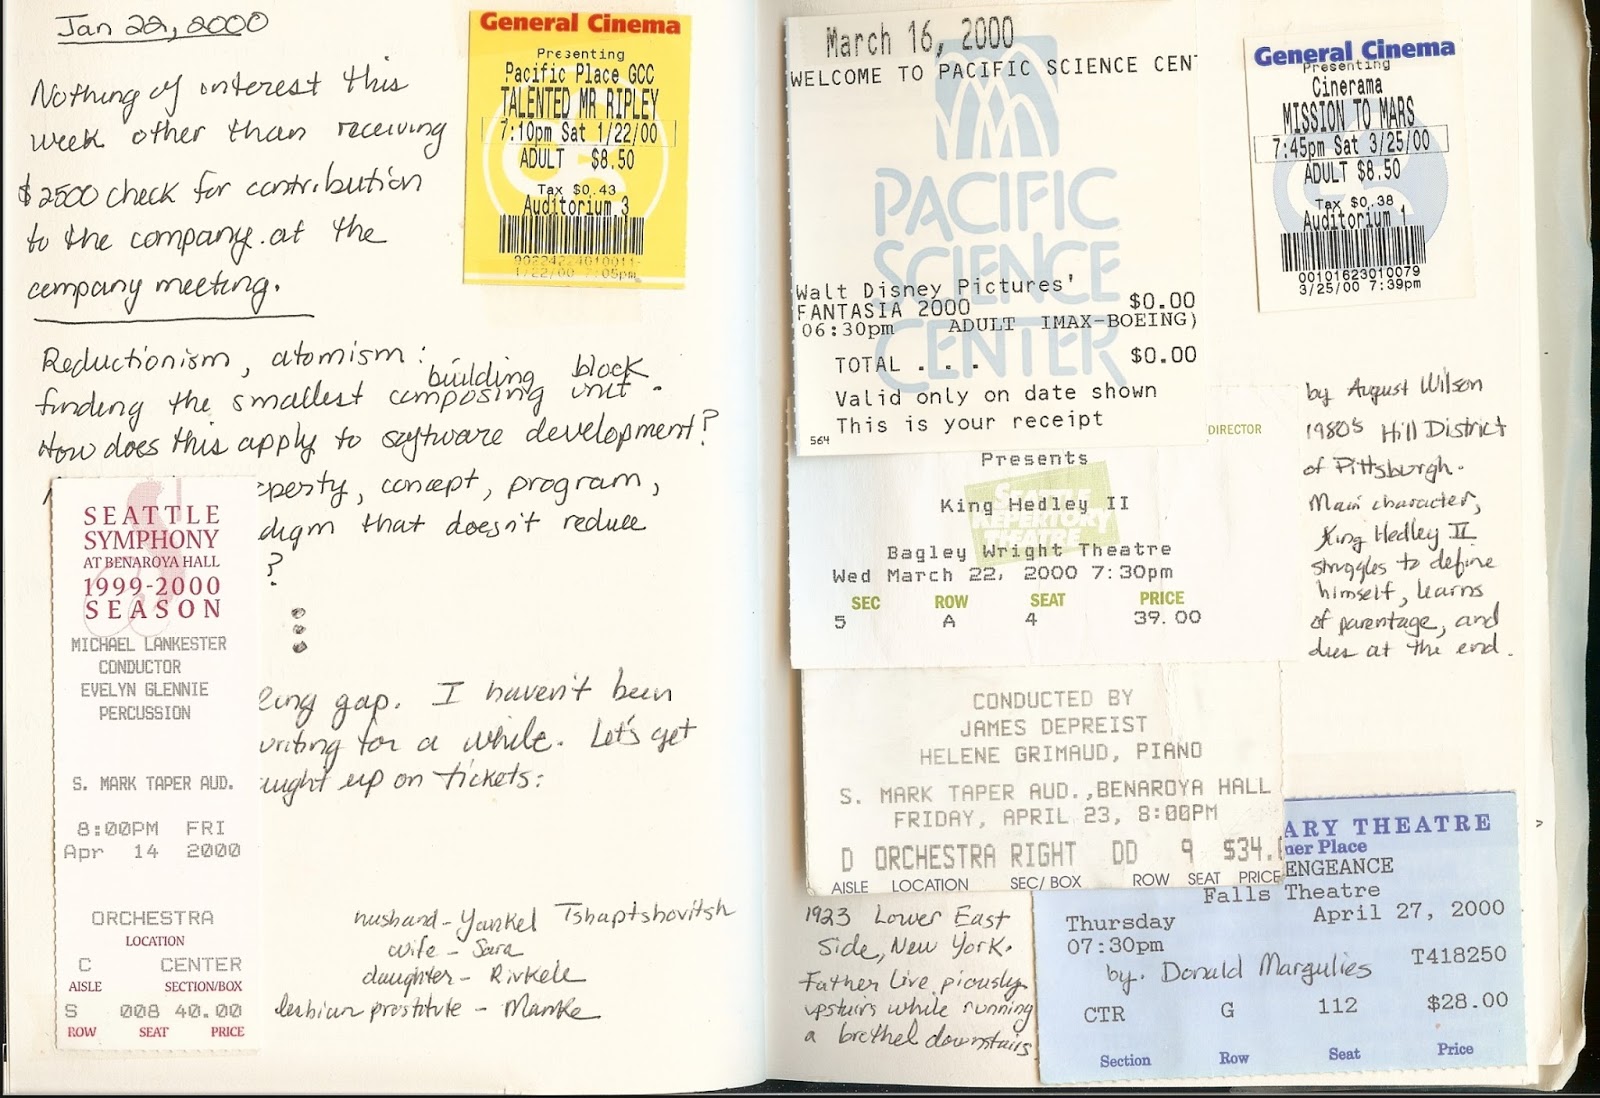 Jan 22, 2000
Nothing of interest this
week other than receiving
$2500 check for contribution
to the company. at the
company meeting.
Reductionism, atomism:
building block
finding the smallest composing unit.
How does this apply to software development?
perty, concept, program,
digm that doesn't reduce
?
ling gap. I haven't been
writing for a while. Let's get
aught up on tickets:
husband - Yankel Tshaptshovitsh
wife - Sara
daughter - Rivkele
lesbian prostitute - Manke
General Cinema
Presenting
Pacific Place GCC
TALENTED MR RIPLEY
7:10pm Sat 1/22/00
ADULT $8.50
Tax $0.43
Auditorium 3
1/22/00 7:05pm
SEATTLE
SYMPHONY
AT BENAROYA HALL
1999-2000
SEASON
MICHAEL LANKESTER
CONDUCTOR
EVELYN GLENNIE
PERCUSSION
S. MARK TAPER AUD.
8:00PM FRI
Apr 14 2000
ORCHESTRA
LOCATION
C CENTER
AISLE SECTION/BOX
S 008 40.00
ROW SEAT PRICE
March 16, 2000
WELCOME TO PACIFIC SCIENCE CEN
PACIFIC
SCIENCE
CENTER
Walt Disney Pictures'
FANTASIA 2000 $0.00
06:30pm ADULT IMAX-BOEING)
TOTAL . . . $0.00
Valid only on date shown
564 This is your receipt
General Cinema
Presenting
Cinerama
MISSION TO MARS
7:45pm Sat 3/25/00
ADULT $8.50
Tax $0.38
Auditorium 1
00101623010079
3/25/00 7:39pm
DIRECTOR
Presents
SEATTLE
REPERTORY
THEATRE
King Hedley II
Bagley Wright Theatre
Wed March 22, 2000 7:30pm
SEC ROW SEAT PRICE
5 A 4 39.00
by August Wilson
1980's Hill District
of Pittsburgh.
Main character,
King Hedley II
struggles to define
himself, learns
of parentage, and
dies at the end.
CONDUCTED BY
JAMES DEPREIST
HELENE GRIMAUD, PIANO
S. MARK TAPER AUD.,BENAROYA HALL
FRIDAY, APRIL 23, 8:00PM
D ORCHESTRA RIGHT DD 9 $34.
AISLE LOCATION SEC/BOX ROW SEAT PRICE
1923 Lower East
Side, New York.
Father live piously
upstairs while running
a brethel downstairs
ARY THEATRE
ner Place
ENGEANCE
Falls Theatre
Thursday April 27, 2000
07:30pm
by. Donald Margulies T418250
CTR G 112 $28.00
Section Row Seat Price